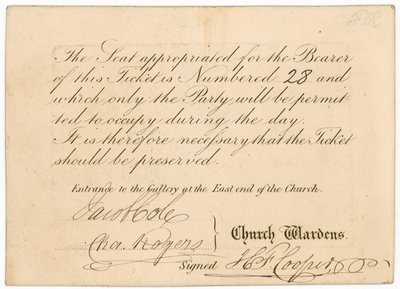 F.R
The Seat appropriated for the Bearer
of this Ticket is Numbered 28 and
which only the Party will be permit
ted to occupy during the day.
It is therefore necessary that the Ticket
should be preserved.
Entrance to the Gallery at the East end of the Church.
Jacob Cole
Cha. Rogers } Church Wardens.
Signed H F Cooper